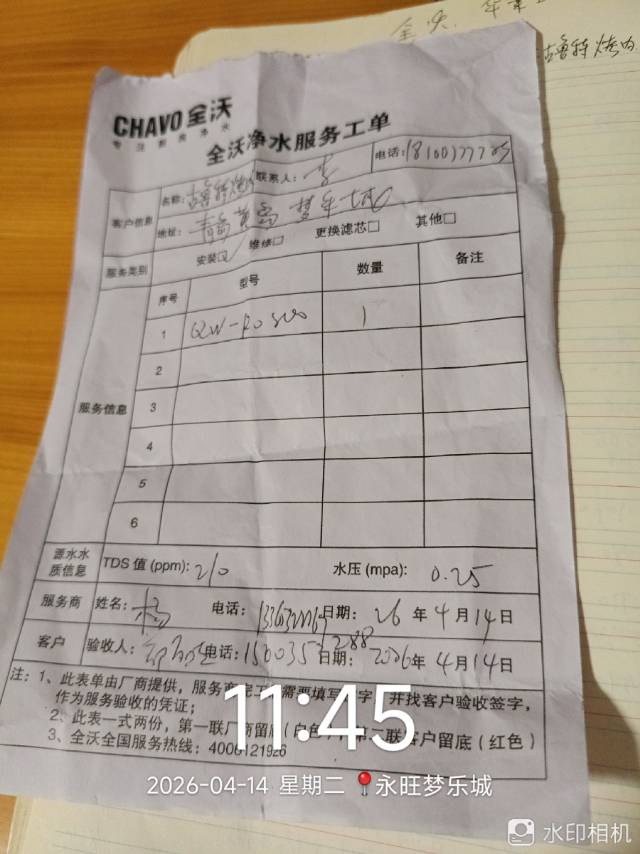 全沃
古鲁特烤肉
CHAVO 全沃
专注厨房净水
全沃净水服务工单
客户信息 名称: 古鲁特烤肉 联系人: 李 电话:
地址: 青岛黄岛 梦乐城
服务类别 安装☑ 维修□ 更换滤芯□ 其他□
服务信息 序号 型号 数量 备注
1 QW-RO 1
2
3
4
5
6
源水水质信息 TDS 值 (ppm): 210 水压 (mpa): 0.25
服务商 姓名: 杨 电话: 日期: 26 年 4 月 14 日
客户 验收人: 电话: 日期: 2026 年 4 月 14 日
注: 1、此表单由厂商提供,服务商完工 需要填写 字 并找客户验收签字,
作为服务验收的凭证;
2、此表一式两份,第一联厂商留底(白色) 第二联客户留底(红色)
3、全沃全国服务热线: 4006121926
11:45
2026-04-14 星期二 📍永旺梦乐城
水印相机